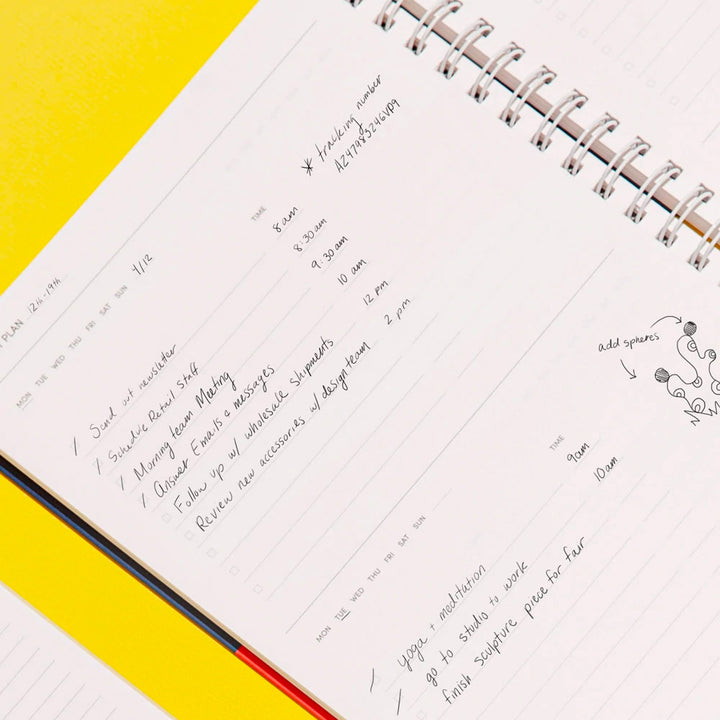 * tracking number
AZ47983246VP9
PLAN 12th-19th
MON TUE WED THU FRI SAT SUN 9/12
TIME
Send out newsletter 8 am
Schedule Retail Staff 8:30 am
Morning team Meeting 9:30 am
Answer Emails & messages 10 am
Follow up w/ wholesale shipments 12 pm
Review new accessories w/ design team 2 pm
add spheres
MON TUE WED THU FRI SAT SUN
TIME
yoga + meditation 9am
go to studio to work 10am
finish sculpture piece for fair